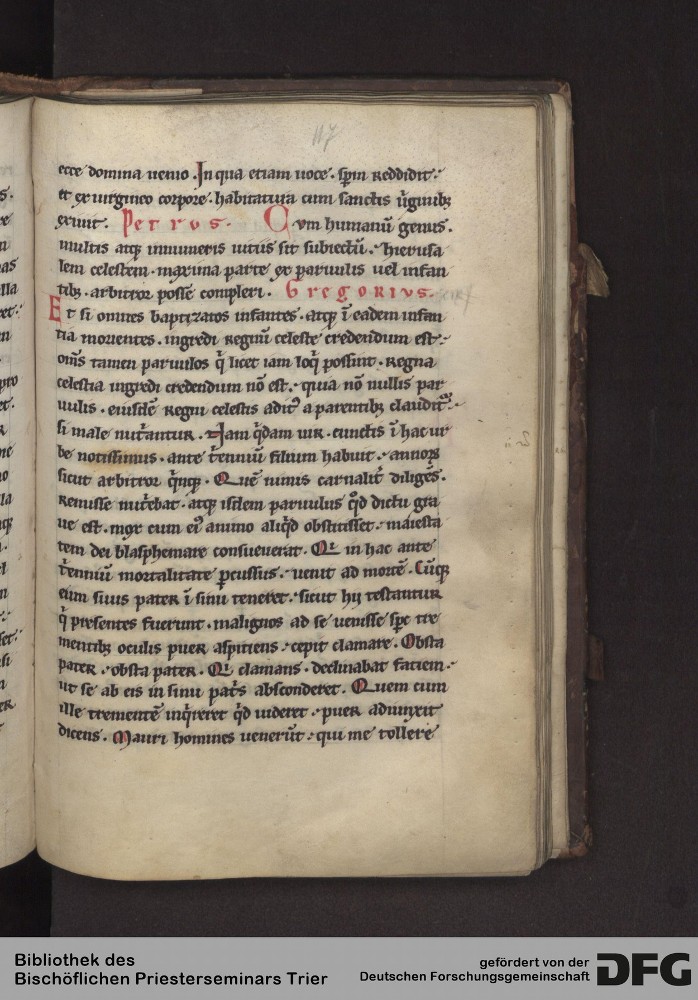 117
ecce domina uenio. In qua etiam uoce. sp̄m reddidit:
et ex uirgineo corpore. habitatura cum sanctis ũginibꝫ
exiuit. Petrus. Cum humanū genus.
multis atqꝫ innumeris uitiis sit subiectū. hierusa
lem celestem. maxima parte ex paruulis uel infan
tibꝫ. arbitror posse compleri. Gregorius.
Et si omnes baptizatos infantes. atqꝫ ī eadem infan
tia morientes. ingredi regnū celeste credendum est.
oms̄ tamen paruulos q̇ licet iam loq̇ possint. regna
celestia ingredi credendum nō est. quia nō nullis par
uulis. eiusdē regni celestis aditꝰ a parentibꝫ claudit᷑.
si male nut̾antur. Nam q̇dam uir. cunctis ī hac ur
be notissimus. ante t̾enniū filium habuit. annoꝝ
sicut arbitror q̇nqꝫ. Quē nimis carnalit̾ diligēs.
remisse nut̾ebat. atqꝫ isdem paruulus qd̄ dictu gra
ue est. mox cum eiꝰ animo aliq̇d obstitisset. maiesta
tem dei blasphemare consueuerat. Qi in hac ante
t̾enniū mortalitate ꝑcussus. uenit ad mortē. Cūqꝫ
eum suus pater ī sinu teneret. sicut hij testantur
q̇ presentes fuerunt. malignos ad se uenisse sp̄c tre
mentibꝫ oculis puer aspitiens. cepit clamare. Obsta
pater. obsta pater. Qi clamans. declinabat faciem.
ut se ab eis in sinu pat̾s absconderet. Quem cum
ille trementē inq̇reret q̇d uideret. puer adiunxit
dicens. Mauri homines uenerūt. qui me tollere
Bibliothek des
Bischöflichen Priesterseminars Trier
gefördert von der
Deutschen Forschungsgemeinschaft
DFG